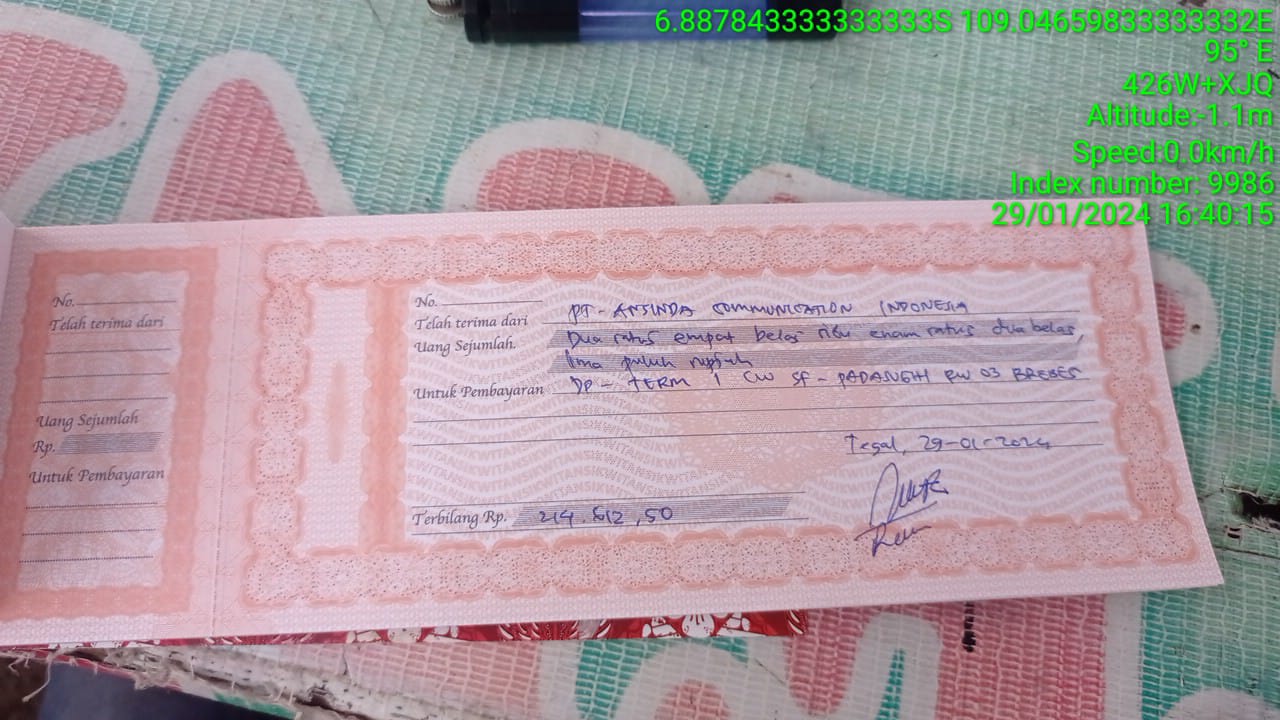 6.887843333333333S 109.04659833333332E
95° E
426W+XJQ
Altitude:-1.1m
Speed:0.0km/h
Index number: 9986
29/01/2024 16:40:15
No.
Telah terima dari
Uang Sejumlah
Rp.
Untuk Pembayaran
No.
Telah terima dari PT- ANJINDA COMMUNICATION INDONESIA
Uang Sejumlah. Dua ratus empat belas ribu enam ratus dua belas,
lima puluh rupiah
Untuk Pembayaran DP - TERM 1 CW SF - PADASUGIH RW 03 BREBES
Tegal, 29-01-2024
Terbilang Rp. 214.612,50